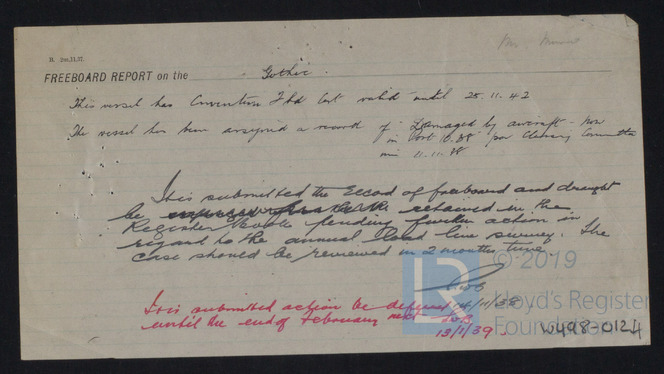 R. 2m,11,37.
Mr.
FREEBOARD REPORT on the Gothic.
This vessel has Convention Fbd Cert valid until 25.11.42
The vessel has been assigned a record of "Damaged by aircraft - now
in Port 10.38" per Classing Committee
min 11.11.38
It is submitted the record of freeboard and draught
be retained in the
Register Book pending further action in
regard to the annual load line survey. The
case should be reviewed in 2 months time.
14/11/38
It is submitted action be deferred
until the end of February next
13/1/39.
© 2019
Lloyd's Register
Foundation
W498-0124